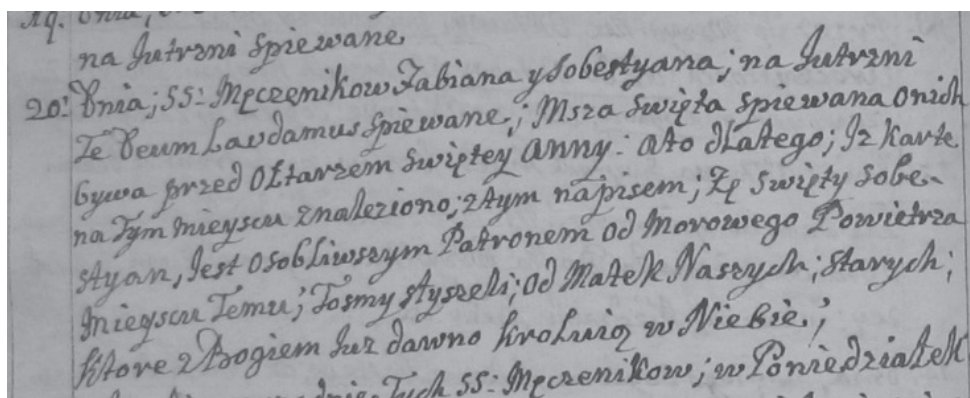 na Jutrzni spiewane
20: Dnia; SS: Męczęnikow Fabiana y Sobestyana; na Jutrzni
Te Deum Laudamus spiewane; Msza Swięta spiewana onich
bywa przed Ołtarzem Swiętey Anny: Ato dlatego; Jz karte
na tym mieyscu znaleziono; ztym napisem; Zę Swięty Sobe-
styan, Jest Osobliwszym Patronem od Morowego Powietrza
Mieyscu Temu; Tosmy słyszeli; od Matek Naszych; starych;
Ktore z Bogiem Juz dawno kroluią w Niebie;
Tych SS: Męczenikow; w Poniedziałek